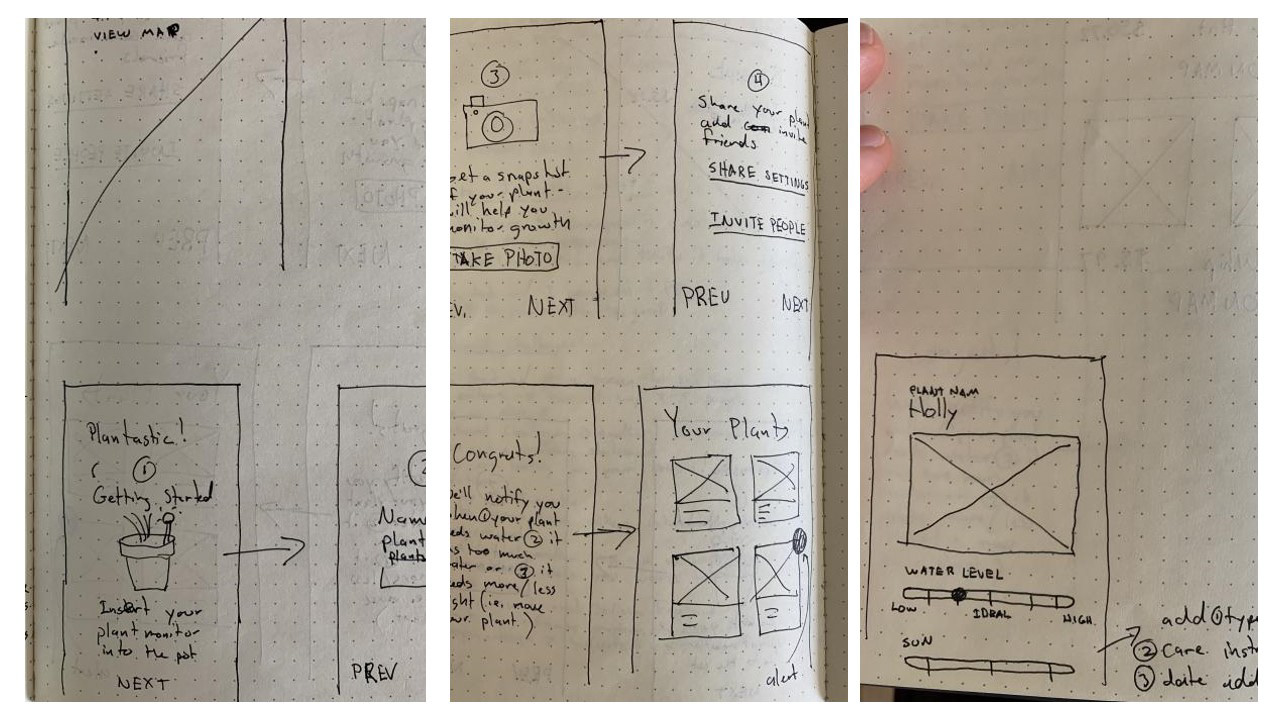 VIEW MAP
Plantastic!
1
Getting Started
Insert your
plant monitor
into the pot
NEXT
2
Nam
plant
plants
PREV
3
et a snapshot
f your plant -
ill help you
onitor growth
TAKE PHOTO
EV.
NEXT
4
Share your plan
add invite
friends
SHARE SETTINGS
INVITE PEOPLE
PREV
NEXT
Congrats!
e'll notify you
hen 1 your plant
eds water 2 it
as too much
ater or 3 it
eds more/less
ght (i.e. move
our plant)
Your Plants
alert
PLANT NAM
Holly
WATER LEVEL
LOW
IDEAL
HIGH
SUN
add 1 typ
2 Care inst
3 date add